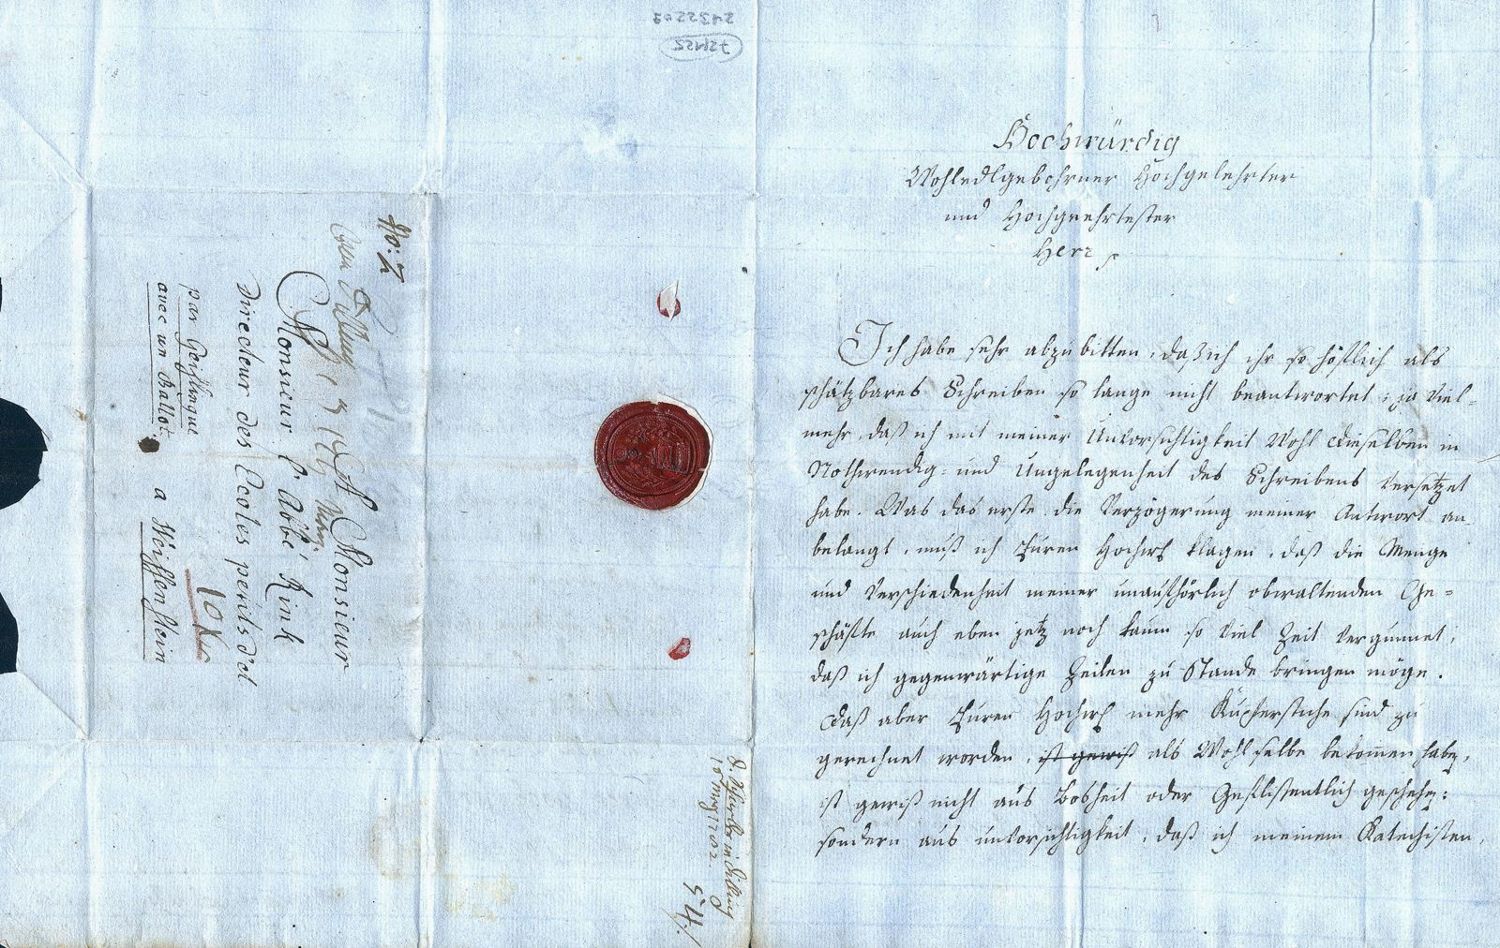 2432202
72/125
No: 7
A Monsieur
Monsieur l'Abbé Rink
Directeur des Ecoles
par Geisslingue
avec un Ballot.
a Weissenstein
10 Kr
54
Hochwürdig
Wohledlgebohrner Hochgelehrter
und Hochgeehrtester
Herr
Ich habe sehr abzubitten, daß ich ihr so höflich als
schätzbares Schreiben so lange nicht beantwortet; ja viel-
mehr, daß ich mit meiner Unvorsichtigkeit Wohl dieselben in
Nothwendig- und Ungelegenheit des Schreibens versetzet
habe. Was das erste, die Verzögerung meiner Antwort an-
belangt, muß ich Euren Hochw klagen, daß die Menge
und Verschiedenheit meiner unaufhörlich obwaltenden Ge-
schäfte auch eben jetz noch kaum so viel Zeit vergunnet,
daß ich gegenwärtige Zeilen zu Stande bringen möge.
Daß aber Euren Hochw mehr Kupferstiche sind zu
gerechnet worden, ist gewiß als Wohl selbe bekommen habe,
ist gewiß nicht aus Bosheit oder Geflissentlich geschehen:
sondern aus unvorsichtigkeit, daß ich meinem Katechisten,